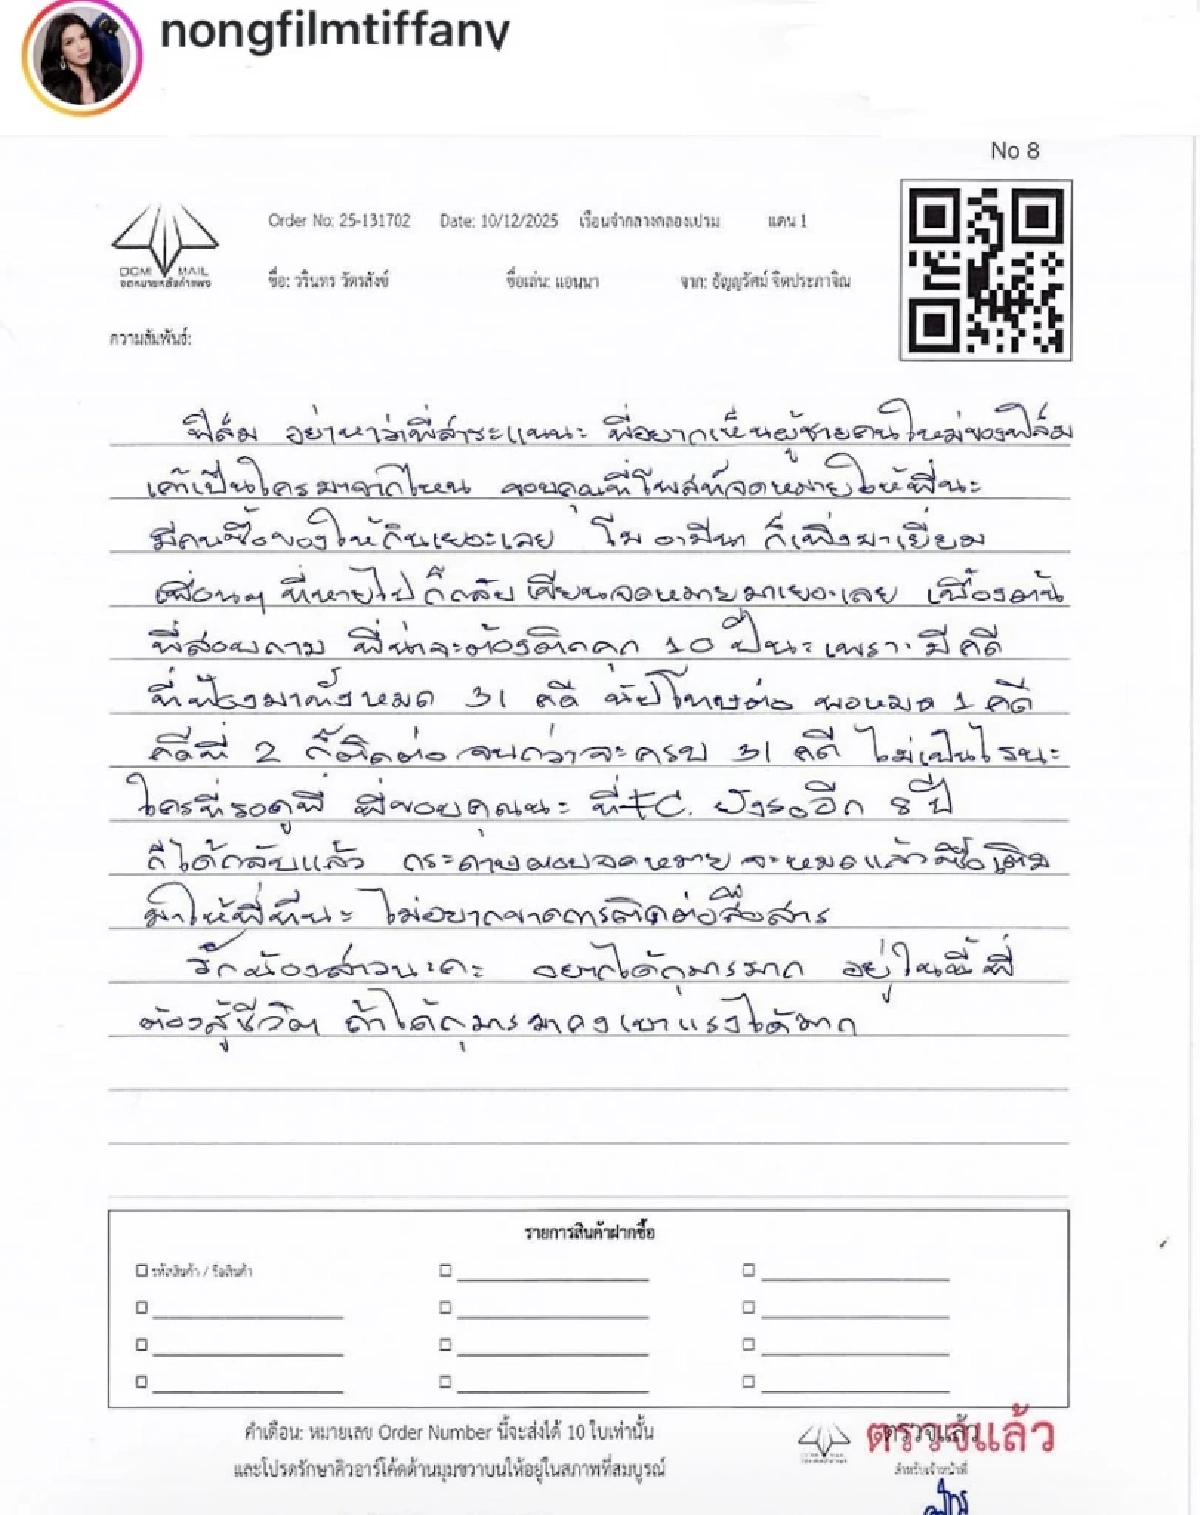 nongfilmtiffany
No 8
Order No: 25-131702 Date: 10/12/2025 เรือนจำกลางคลองเปรม แดน 1
DOMI MAIL
จดหมายหลังกำแพง
ชื่อ: วรินทร วัตรสังข์ ชื่อเล่น: แอนนา จาก: ธัญญรัศม์ จิตประภาจิณ
ความสัมพันธ์:
ฟิล์ม อย่าหาว่าพี่สาระแนนะ พี่อยากเห็นผู้ชายคนใหม่ของฟิล์ม
เค้าเป็นใครมาจากไหน ขอบคุณที่โพสท์จดหมายให้พี่นะ
มีคนซื้อของให้กินเยอะเลย โบ อามีนา ก็เพิ่งมาเยี่ยม
เพื่อนๆ ที่หายไป ก็กลับเขียนจดหมายมาเยอะเลย เบื้องต้น
พี่สอบถาม พี่น่าจะต้องติดคุก 10 ปีนะเพราะมีคดี
ที่ฟ้องมาทั้งหมด 31 คดี นับโทษต่อ พอหมด 1 คดี
คดีที่ 2 ก็ติดต่อ จนกว่าจะครบ 31 คดี ไม่เป็นไรนะ
ใครที่รอดูพี่ พี่ขอบคุณนะ ที่ FC. ยังรออีก 8 ปี
ก็ได้กลับแล้ว กระดาษตอบจดหมายจะหมดแล้วซื้อเติม
มาให้พี่ทีนะ ไม่อยากขาดการติดต่อสื่อสาร
รักน้องสาวนะคะ อยากได้กุมารมาก อยู่ในนี้พี่
ต้องสู้ชีวิตฯ ถ้าได้กุมารมาคงเบาแรงได้มาก
รายการสินค้าฝากซื้อ
รหัสสินค้า / ชื่อสินค้า
คำเตือน: หมายเลข Order Number นี้จะส่งได้ 10 ใบเท่านั้น
และโปรดรักษาคิวอาร์โค้ดด้านมุมขวาบนให้อยู่ในสภาพที่สมบูรณ์
ตรวจแล้ว
ตรวจแล้ว
สำหรับเจ้าหน้าที่